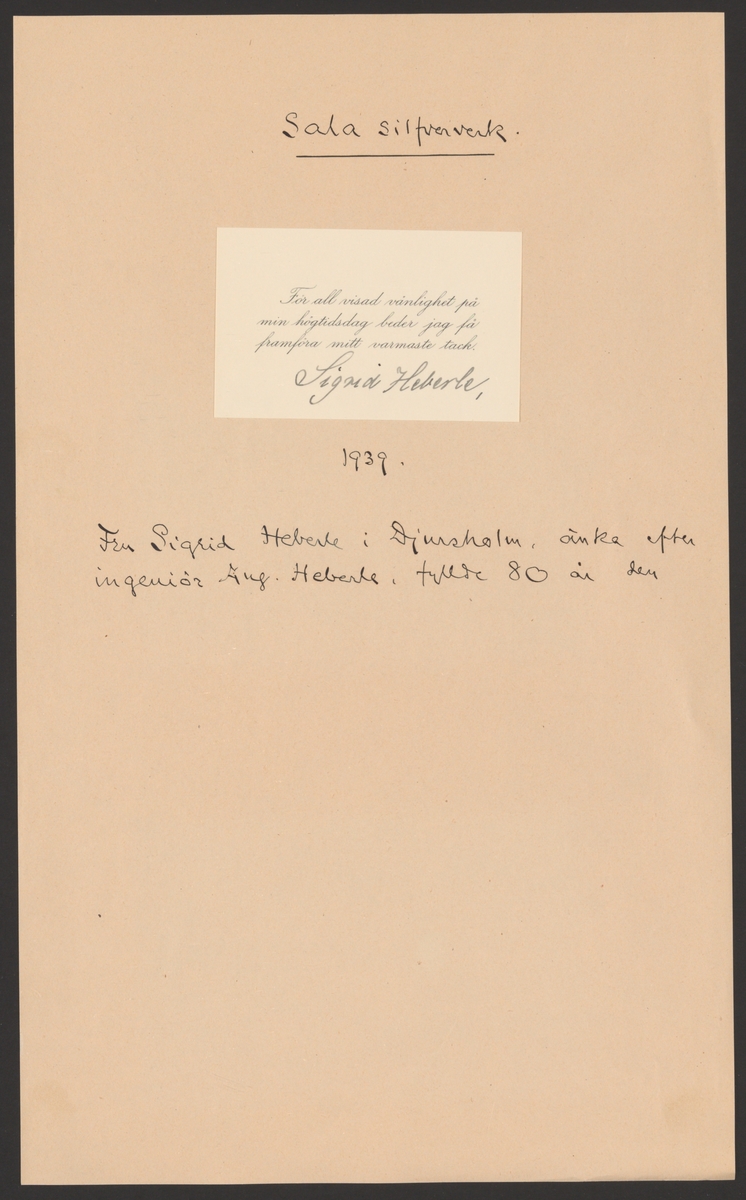 Sala silfververk.
För all visad vänlighet på
min högtidsdag beder jag få
framföra mitt varmaste tack.
Sigrid Heberle,
1939.
Fru Sigrid Heberle i Djursholm, änka efter
ingeniör Aug. Heberle, fyllde 80 år den